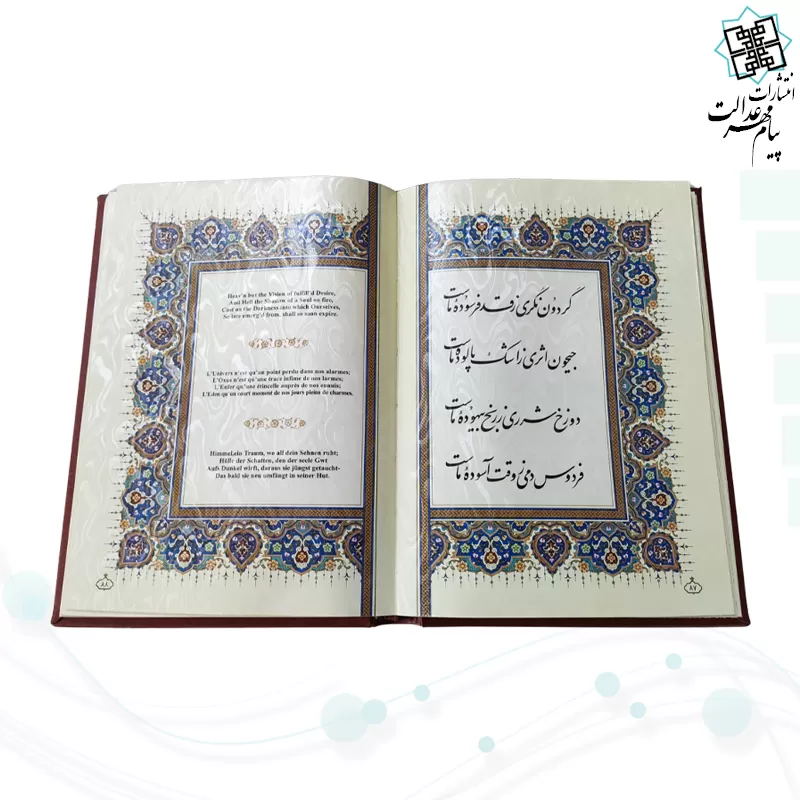 انتشارات
پیام مهر عدالت
گردون نگری ز قد فرسوده ماست
جیحون اثری ز اشک پالوده ماست
دوزخ شرری ز رنج بیهوده ماست
فردوس دمی ز وقت آسوده ماست
۸۷
Heav'n but the Vision of fulfill'd Desire,
And Hell the Shadow of a Soul on fire,
Cast on the Darkness into which Ourselves,
So late emerg'd from, shall so soon expire.
L'Univers n'est qu'un point perdu dans nos alarmes;
L'Oxus n'est qu'une trace infime de nos larmes;
L'Enfer qu'une étincelle auprès de nos ennuis;
L'Eden qu'un court moment de nos jours pleins de charmes.
Himmel,ein Traum, wo all dein Sehnen ruht;
Hölle der Schatten, den der seele Gwt
Aufs Dunkel wirft, daraus sie jüngst getaucht-
Das bald sie neu umfängt in seiner Hut.
۸۸